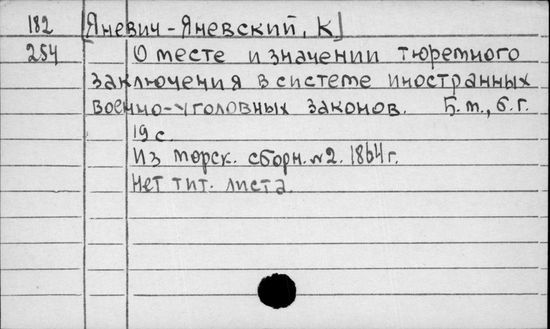 182 [Яневич-Яневский, К]
254 О месте и значении тюремного
заключения в системе иностранных
военно-уголовных законов. Б.м., б.г.
19 с.
Из морск. сборн. №2. 1864 г.
Нет тит. листа.